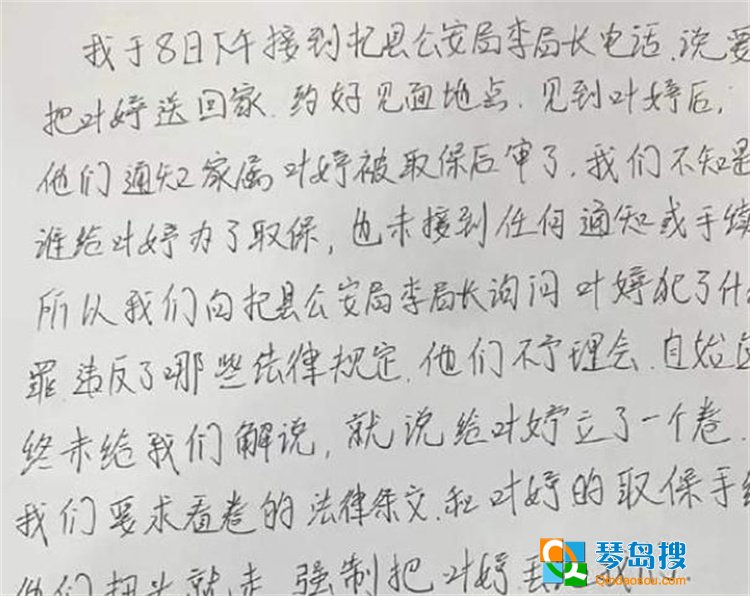 我于8日下午接到杞县公安局李局长电话.说要
把叶婷送回家.约好见面地点.见到叶婷后,
他们通知家属叶婷被取保后审了.我们不知是
谁给叶婷办了取保,也未接到任何通知或手续
所以我们向杞县公安局李局长询问叶婷犯了什
罪.违反了哪些法律规定.他们不予理会.自始
终未给我们解说,就说给叶婷立了一个卷.
我们要求看卷的法律条文.和叶婷的取保手续
他们扭头就走.强制把叶婷丢
琴岛搜
Qindaosou.com